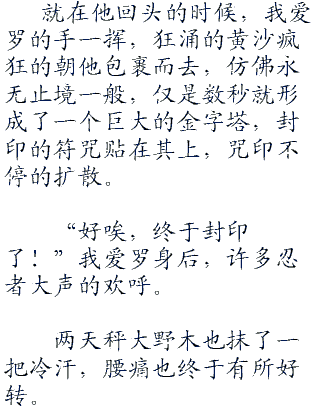 就在他回头的时候，我爱
罗的手一挥，狂涌的黄沙疯
狂的朝他包裹而去，仿佛永
无止境一般，仅是数秒就形
成了一个巨大的金字塔，封
印的符咒贴在其上，咒印不
停的扩散。
“好唉，终于封印
了！”我爱罗身后，许多忍
者大声的欢呼。
两天秤大野木也抹了一
把冷汗，腰痛也终于有所好
转。